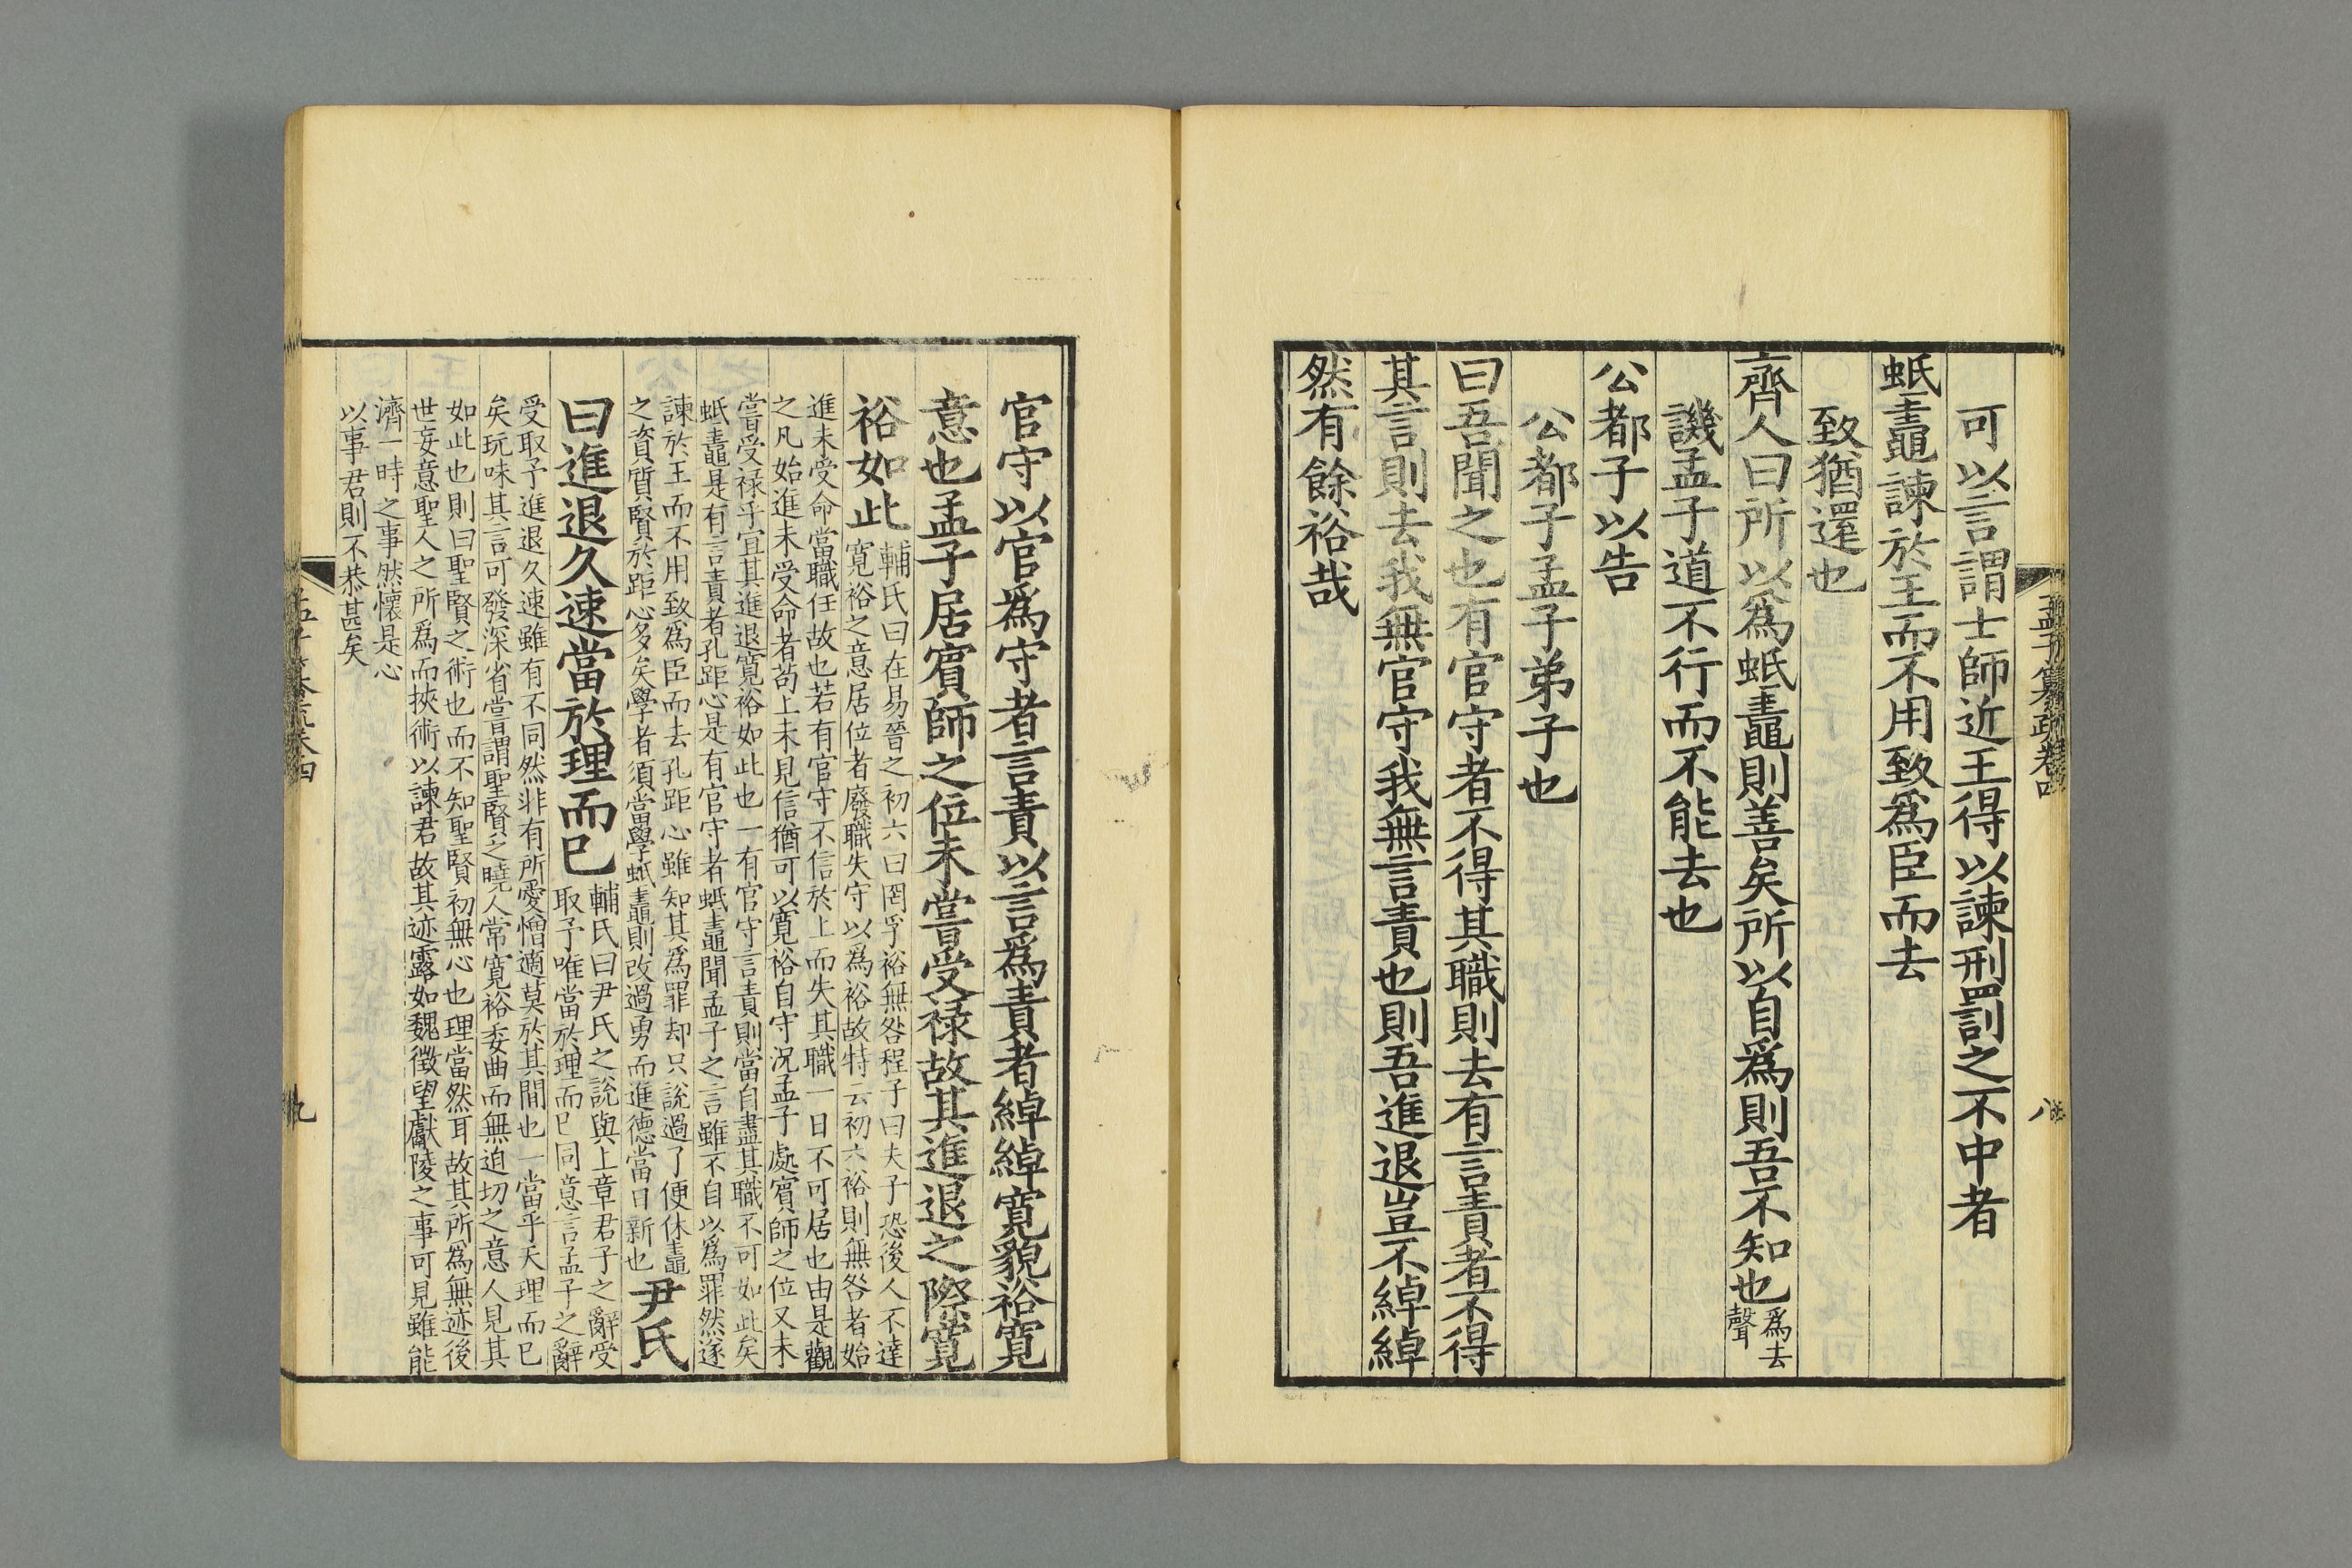 孟子纂疏卷四
八
可以言謂士師近王得以諫刑罰之不中者
蚳鼃諫於王而不用致爲臣而去
致猶還也
齊人曰所以爲蚳鼃則善矣所以自爲則吾不知也爲去
聲
譏孟子道不行而不能去也
公都子以告
公都子孟子弟子也
曰吾聞之也有官守者不得其職則去有言責者不得
其言則去我無官守我無言責也則吾進退豈不綽綽
然有餘裕哉
官守以官爲守者言責以言爲責者綽綽寬貌裕寬
意也孟子居賓師之位未嘗受祿故其進退之際寬
裕如此
輔氏曰在易晉之初六曰罔孚裕無咎程子曰夫子恐後人不達
寬裕之意居位者廢職失守以爲裕故特云初六裕則無咎者始
進未受命當職任故也若有官守不信於上而失其職一日不可居也由是觀
之凡始進未受命者苟上未見信猶可以寬裕自守況孟子處賓師之位又未
嘗受祿乎宜其進退寬裕如此也一有官守言責則當自盡其職不可如此矣
蚳鼃是有言責者孔距心是有官守者蚳鼃聞孟子之言雖不自以爲罪然遂
諫於王而不用致爲臣而去孔距心雖知其爲罪却只說過了便休鼃
之資質賢於距心多矣學者須當學蚳鼃則改過勇而進德當日新也
尹氏
曰進退久速當於理而已
輔氏曰尹氏之說與上章君子之辭受
取予唯當於理而已同意言孟子之辭
受取予進退久速雖有不同然非有所愛憎適莫於其間也一當乎天理而已
矣玩味其言可發深省嘗謂聖賢之曉人常寬裕委曲而無迫切之意人見其
如此也則曰聖賢之術也而不知聖賢初無心也理當然耳故其所爲無迹後
世妄意聖人之所爲而挾術以諫君故其迹露如魏徵望獻陵之事可見雖能
濟一時之事然懷是心
以事君則不恭甚矣
九